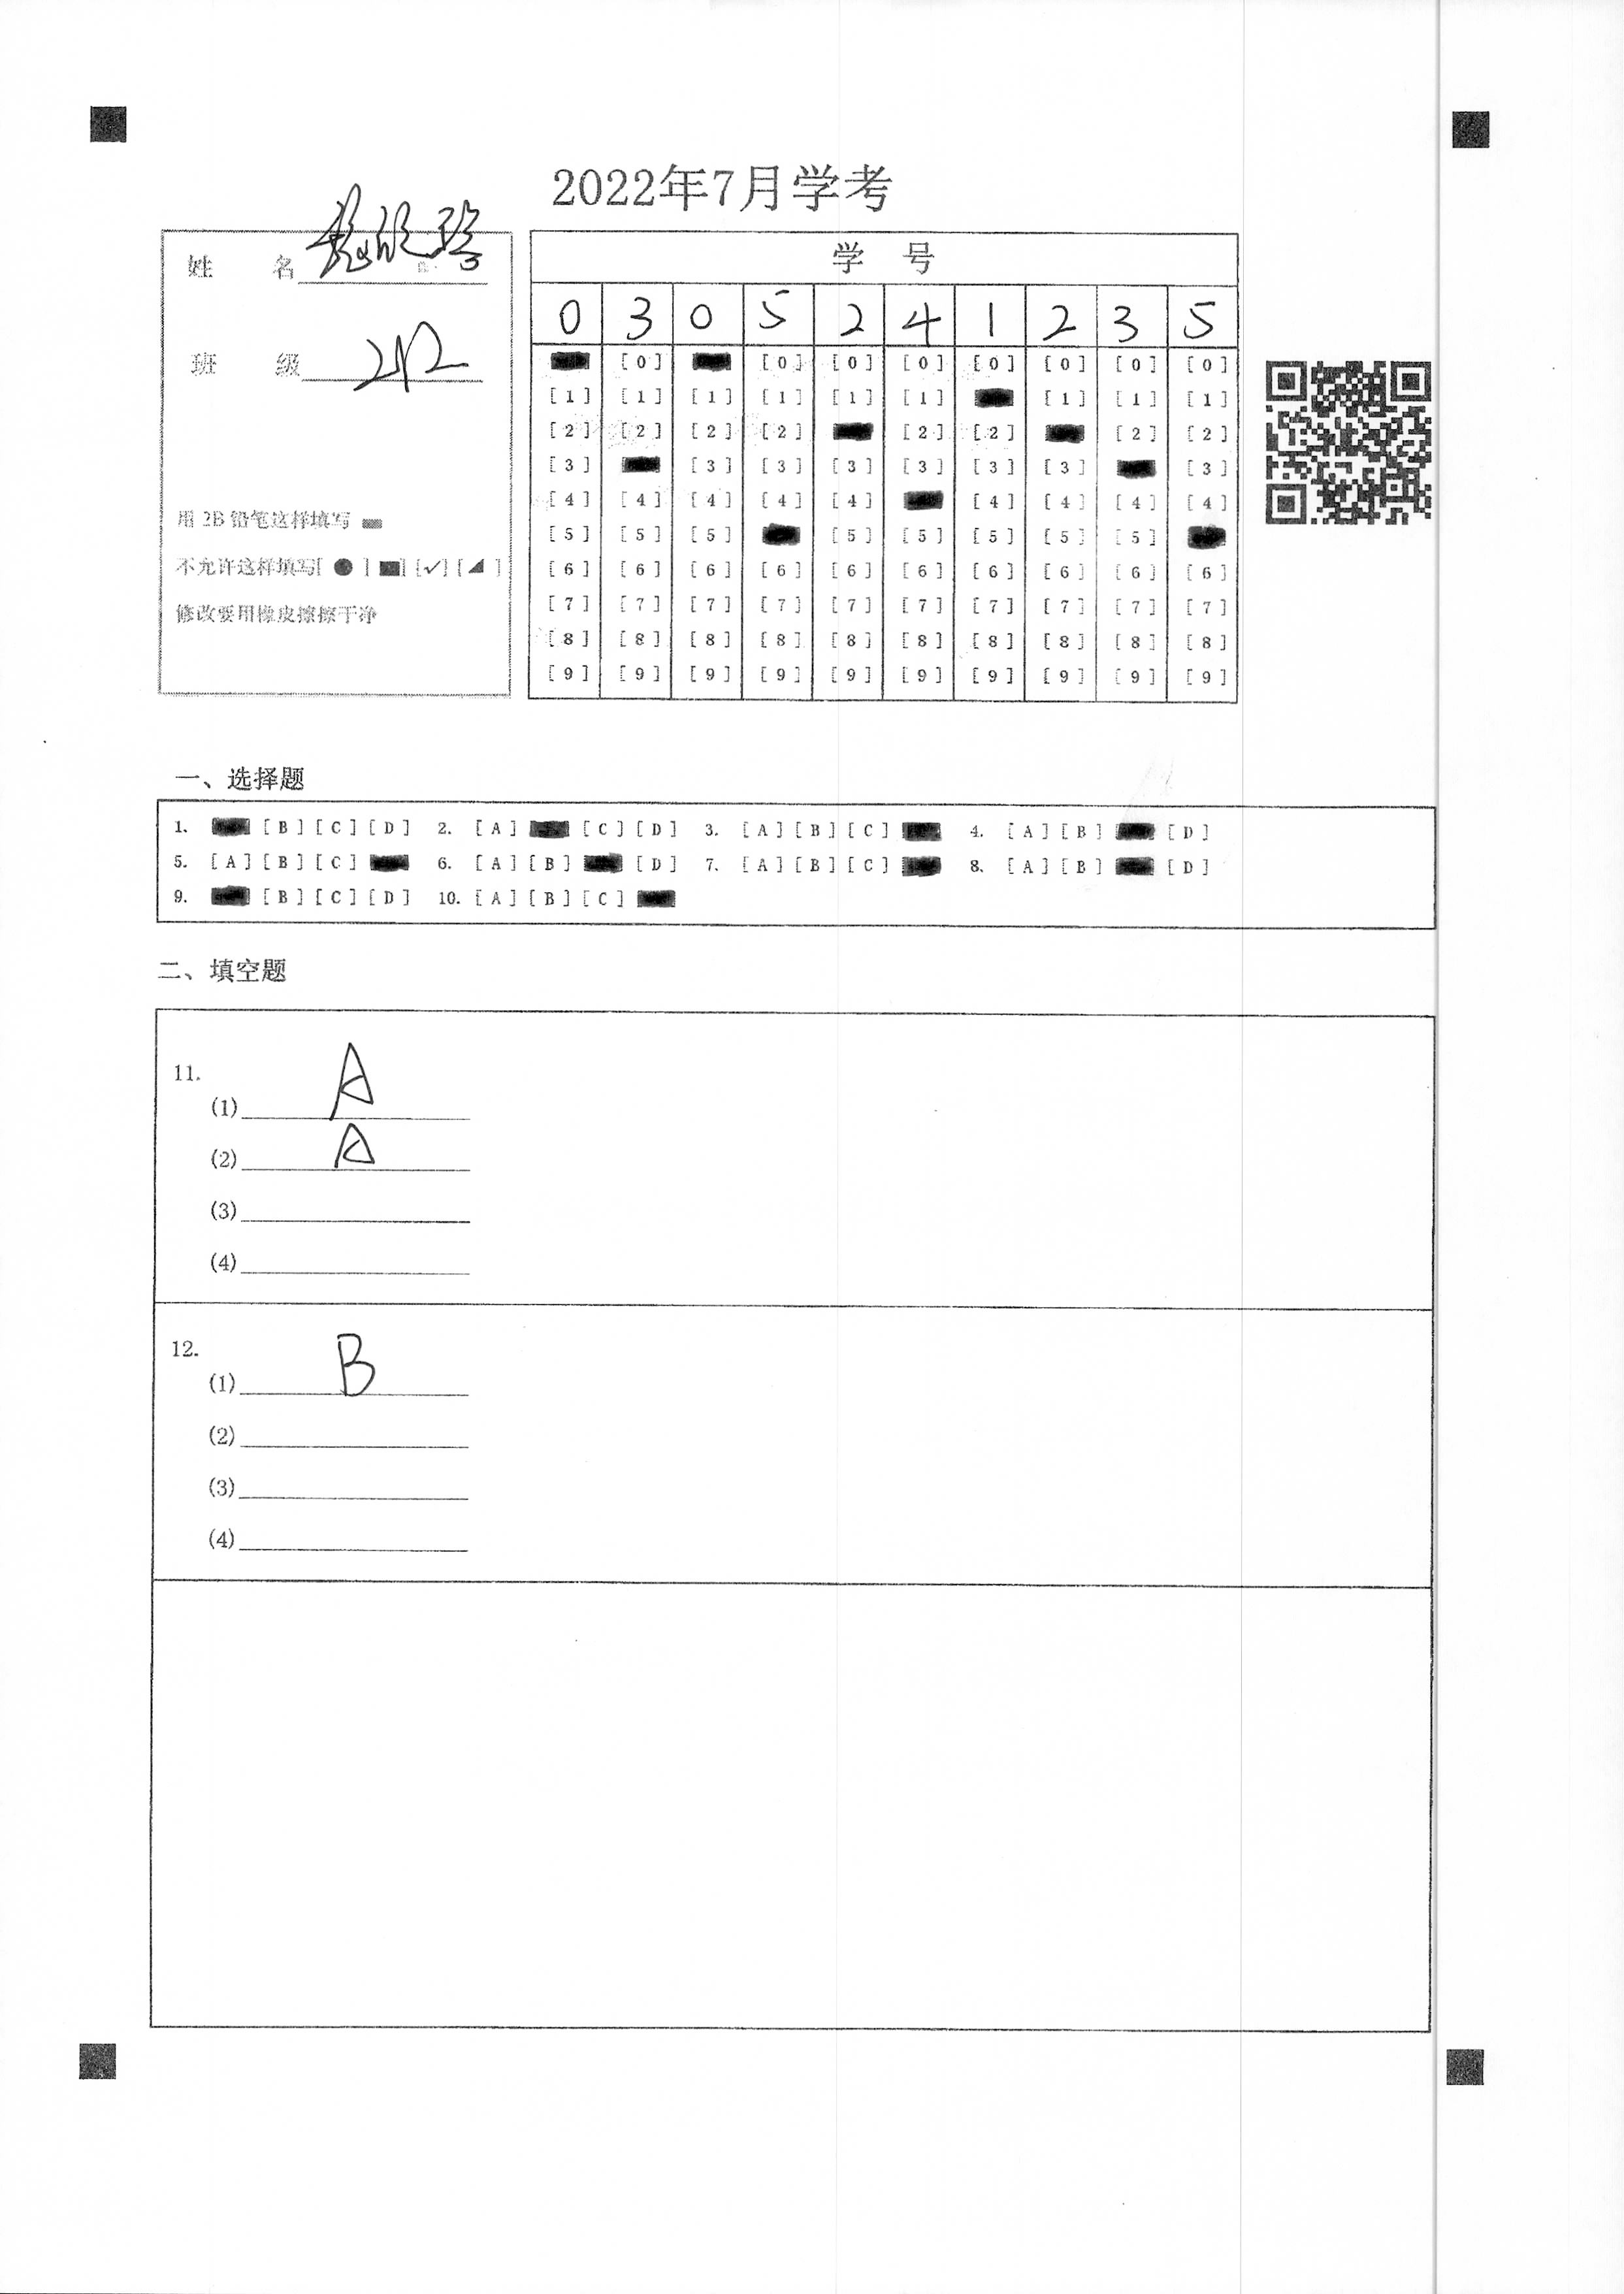 2022年7月学考
姓 名
班 级 212
用 2B 铅笔这样填写
不允许这样填写[ ● ] [■] [✓] [◢ ]
修改要用橡皮擦擦干净
学 号
0 3 0 5 2 4 1 2 3 5
[0] [0] [0] [0] [0] [0] [0] [0]
[1] [1] [1] [1] [1] [1] [1] [1] [1]
[2] [2] [2] [2] [2] [2] [2] [2]
[3] [3] [3] [3] [3] [3] [3] [3]
[4] [4] [4] [4] [4] [4] [4] [4] [4]
[5] [5] [5] [5] [5] [5] [5] [5]
[6] [6] [6] [6] [6] [6] [6] [6] [6] [6]
[7] [7] [7] [7] [7] [7] [7] [7] [7] [7]
[8] [8] [8] [8] [8] [8] [8] [8] [8] [8]
[9] [9] [9] [9] [9] [9] [9] [9] [9] [9]
一、选择题
1. [B] [C] [D] 2. [A] [C] [D] 3. [A] [B] [C] 4. [A] [B] [D]
5. [A] [B] [C] 6. [A] [B] [D] 7. [A] [B] [C] 8. [A] [B] [D]
9. [B] [C] [D] 10. [A] [B] [C]
二、填空题
11.
(1) A
(2) A
(3)
(4)
12.
(1) B
(2)
(3)
(4)